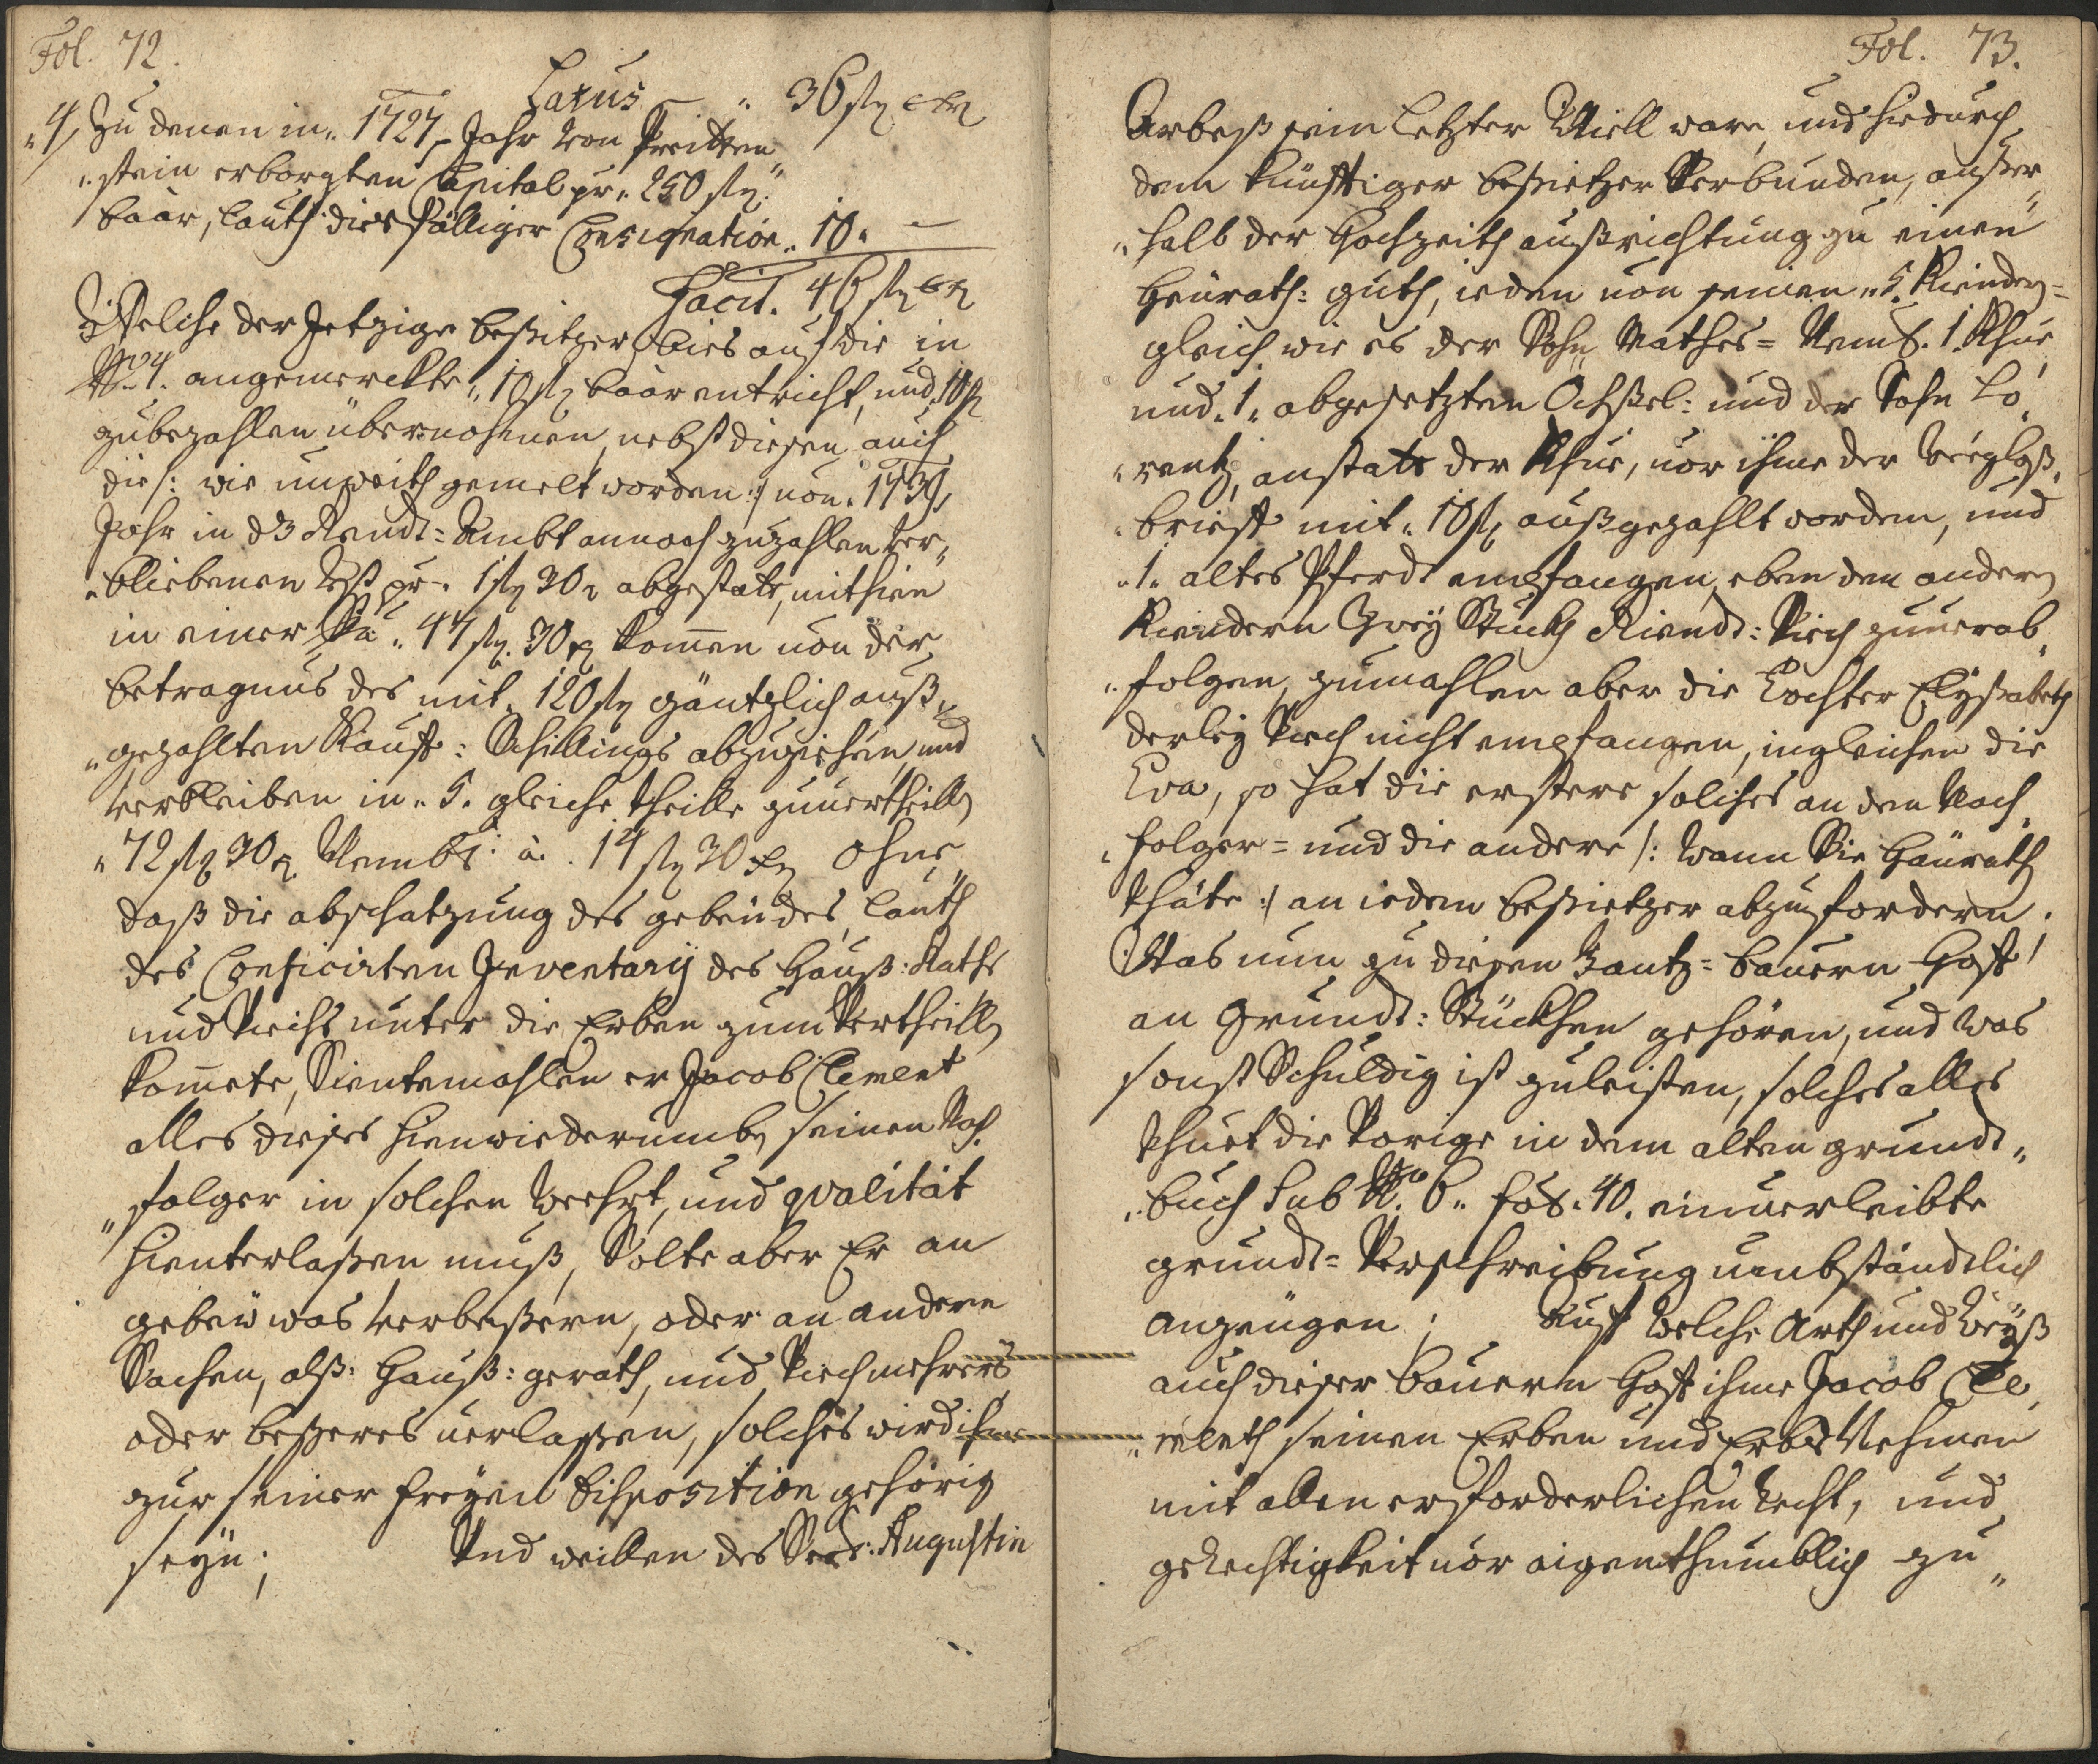 Fol. 72.
Latus — „ 36 fl xr
„4, Zu denen in „ 1727 Jahr von Preitten„
„stein erborgten Capital pr „ 250 fl.
baar, lauth dies fälliger Consignation „ 10 „ —
Facit. 46 fl xr
Welche der Jetzige besitzer bies auf die in
No. 4. angemerckte „ 10 fl baar entricht, und 10 fl
zubezahlen übernohmen, nebst diesen auch
die /: wie unweith gemelt worden :/ von „ 173
Jahr in d3 Rendt=Ambt annoch zuzahlen ver„
„bliebenen Rest pr „ 1 fl 30 x abgestatt, mithin
in einer Sa „ 47 fl. 30 x komen von der
betragnus des mit „ 120 fl gäntzlich auß„
„gezahlten Kauff: Schillings abzuziehen, und
verbleiben in „ 5. gleiche theille zuvertheillen
„ 72 fl 30 x Nembl: à. 14 fl 30 xr ohne
daß die abschatzung des gebeudes, lauth
des Conficirten Inventarij des Hauß: Raths
und Viechs unter die Erben zum Vertheillen
komete, Sientemahlen er Jacob Clement
alles dieses hienwiederumb seinen Nach
„folger in solchen Wehrt, und qvalität
hienterlaßen muß, Solte aber Er an
gebew was verbeßern, oder an andern
Sachen, alß: Hauß: gerath, und Viech mehrers
oder beßeres verlaßen, solches wird ihme
zur seiner freyen Disposition gehörig
seyn; Und weillen des Seel: Augustin
Fol. 73.
Arbeß sein letzter Will ware, und hiedurch
dem künfftiger besietzer Verbunden, außer„
„halb der Hochzeith außrichtung zu einen
Heurath: guth, ieden von seinen „ 5. Kiendern=
gleich wie es der Sohn Mathes= Nembl. 1. Khue
und „ 1 „ abgesetzten Ochßel: und der Sohn Lo„
„rentz, anstatt der Khue, vor ihme der
„brieff mit „ 10 fl außgezahlt worden, und
„1 „ altes Pferdt empfangen, eben den andern
Kiendern Zwey Stuckh Riendt: Viech zuverab„
„folgen, zumahlen aber die Tochter Elyßabeth
derley Viech nicht empfangen, ingleichen die
Eva, so hat die erstere solches an den Nach„
„folger= und die andere /: wann Sie Heurath
thäte :/ an iedem besietzer abzufordern.
Was nun zu diesen Gantz=bauern Hoff
an Grundt: Stückhen gehören, und was
sonst Schuldig ist zuleisten, solches alles
thuet die Vorige in dem alten grundt„
„buch Sub No. 6 „ fol: 40. einverleibte
grundt=Verschreibung umbständtlich
anzeugen; Auf Welche Arth und Weyß
auch dieser bauern Hoff ihme Jacob Cle„
„menth seinen Erben und Erbs Nehmen
mit allen erforderlichen Recht, und
geRechtigkeit vor aigenthumblich zu„